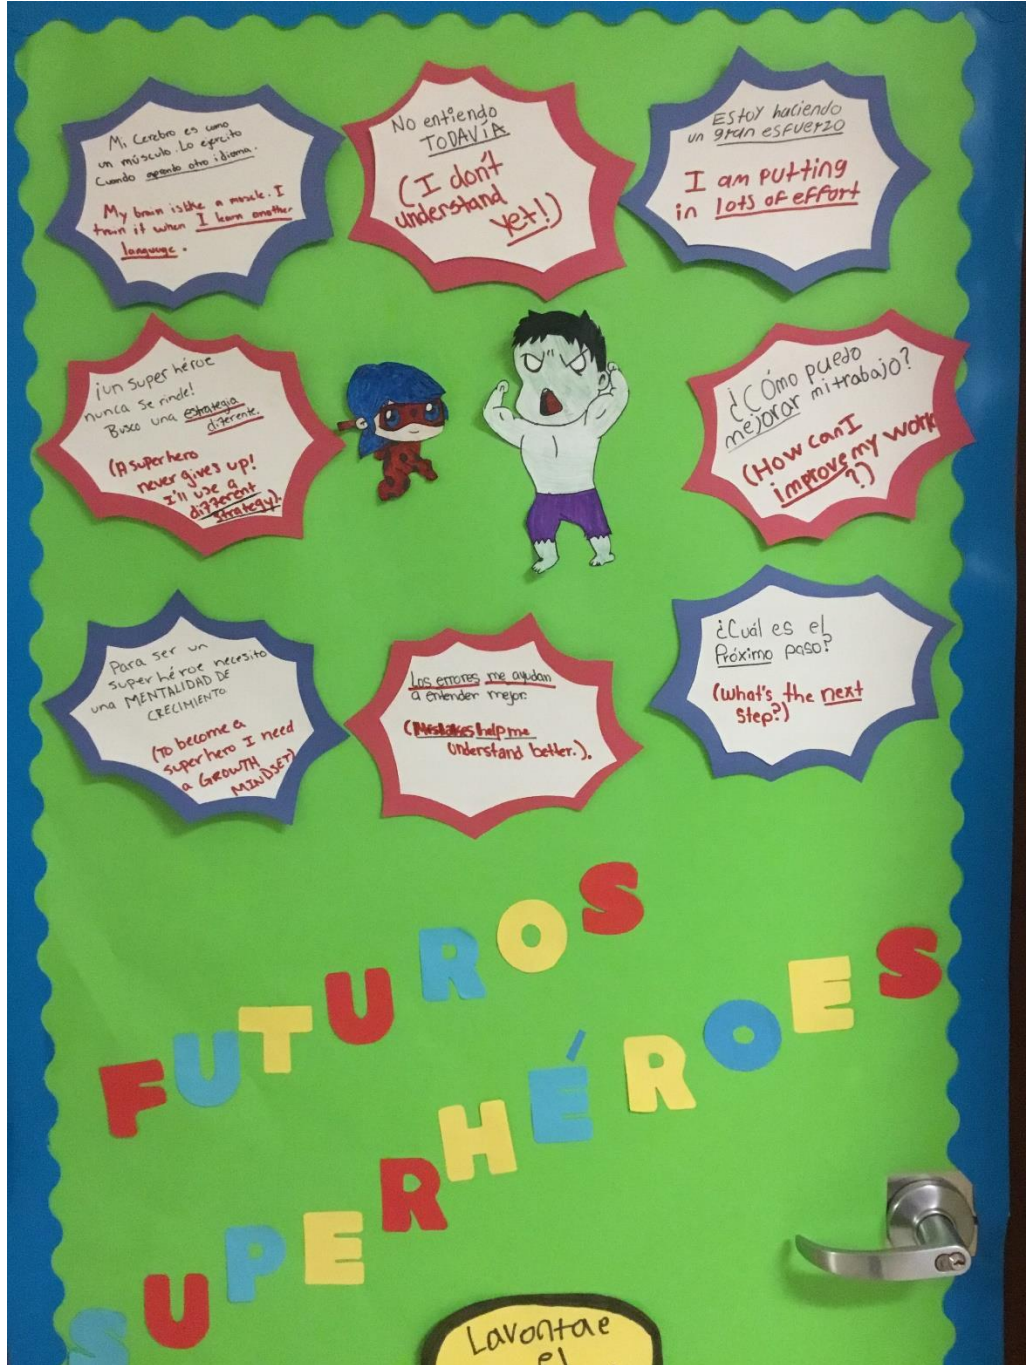 Mi Cerebro es como
un músculo. Lo ejercito
Cuando aprendo otro idioma.
My brain is like a muscle. I
train it when I learn another
language.
No entiendo
TODAVÍA
(I don't
understand
yet!)
Estoy haciendo
un gran esfuerzo
I am putting
in lots of effort
¡un super héroe
nunca se rinde!
Busco una estrategia
diferente.
(A superhero
never gives up!
I'll use a
different
strategy).
¿Cómo puedo
mejorar mi trabajo?
(How can I
improve my work
?)
Para ser un
super héroe necesito
una MENTALIDAD DE
CRECIMIENTO
(To become a
super hero I need
a GROWTH
MINDSET)
Los errores me ayudan
a entender mejor.
(Mistakes help me
understand better.).
¿Cuál es el
Próximo paso?
(what's the next
step?)
FUTUROS
SUPERHÉROES
Lavontae
el